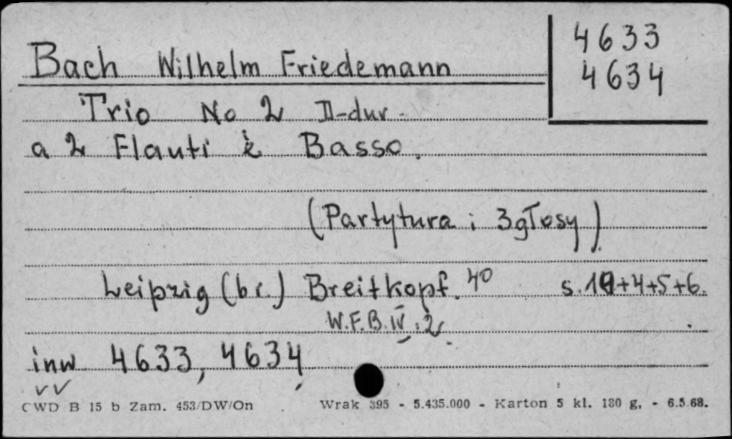 4633
4634
Bach Wilhelm Friedemann
Trio No 2 D-dur.
a 2 Flauti è Basso.
(Partytura i 3 głosy)
Leipzig (br.) Breitkopf. 4° s. +4+5+6.
W.F.B. IV, 2.
inw 4633, 4634
CWD B 15 b Zam. 453/DW/On Wrak 395 - 5.435.000 - Karton 5 kl. 180 g. - 6.5.68.